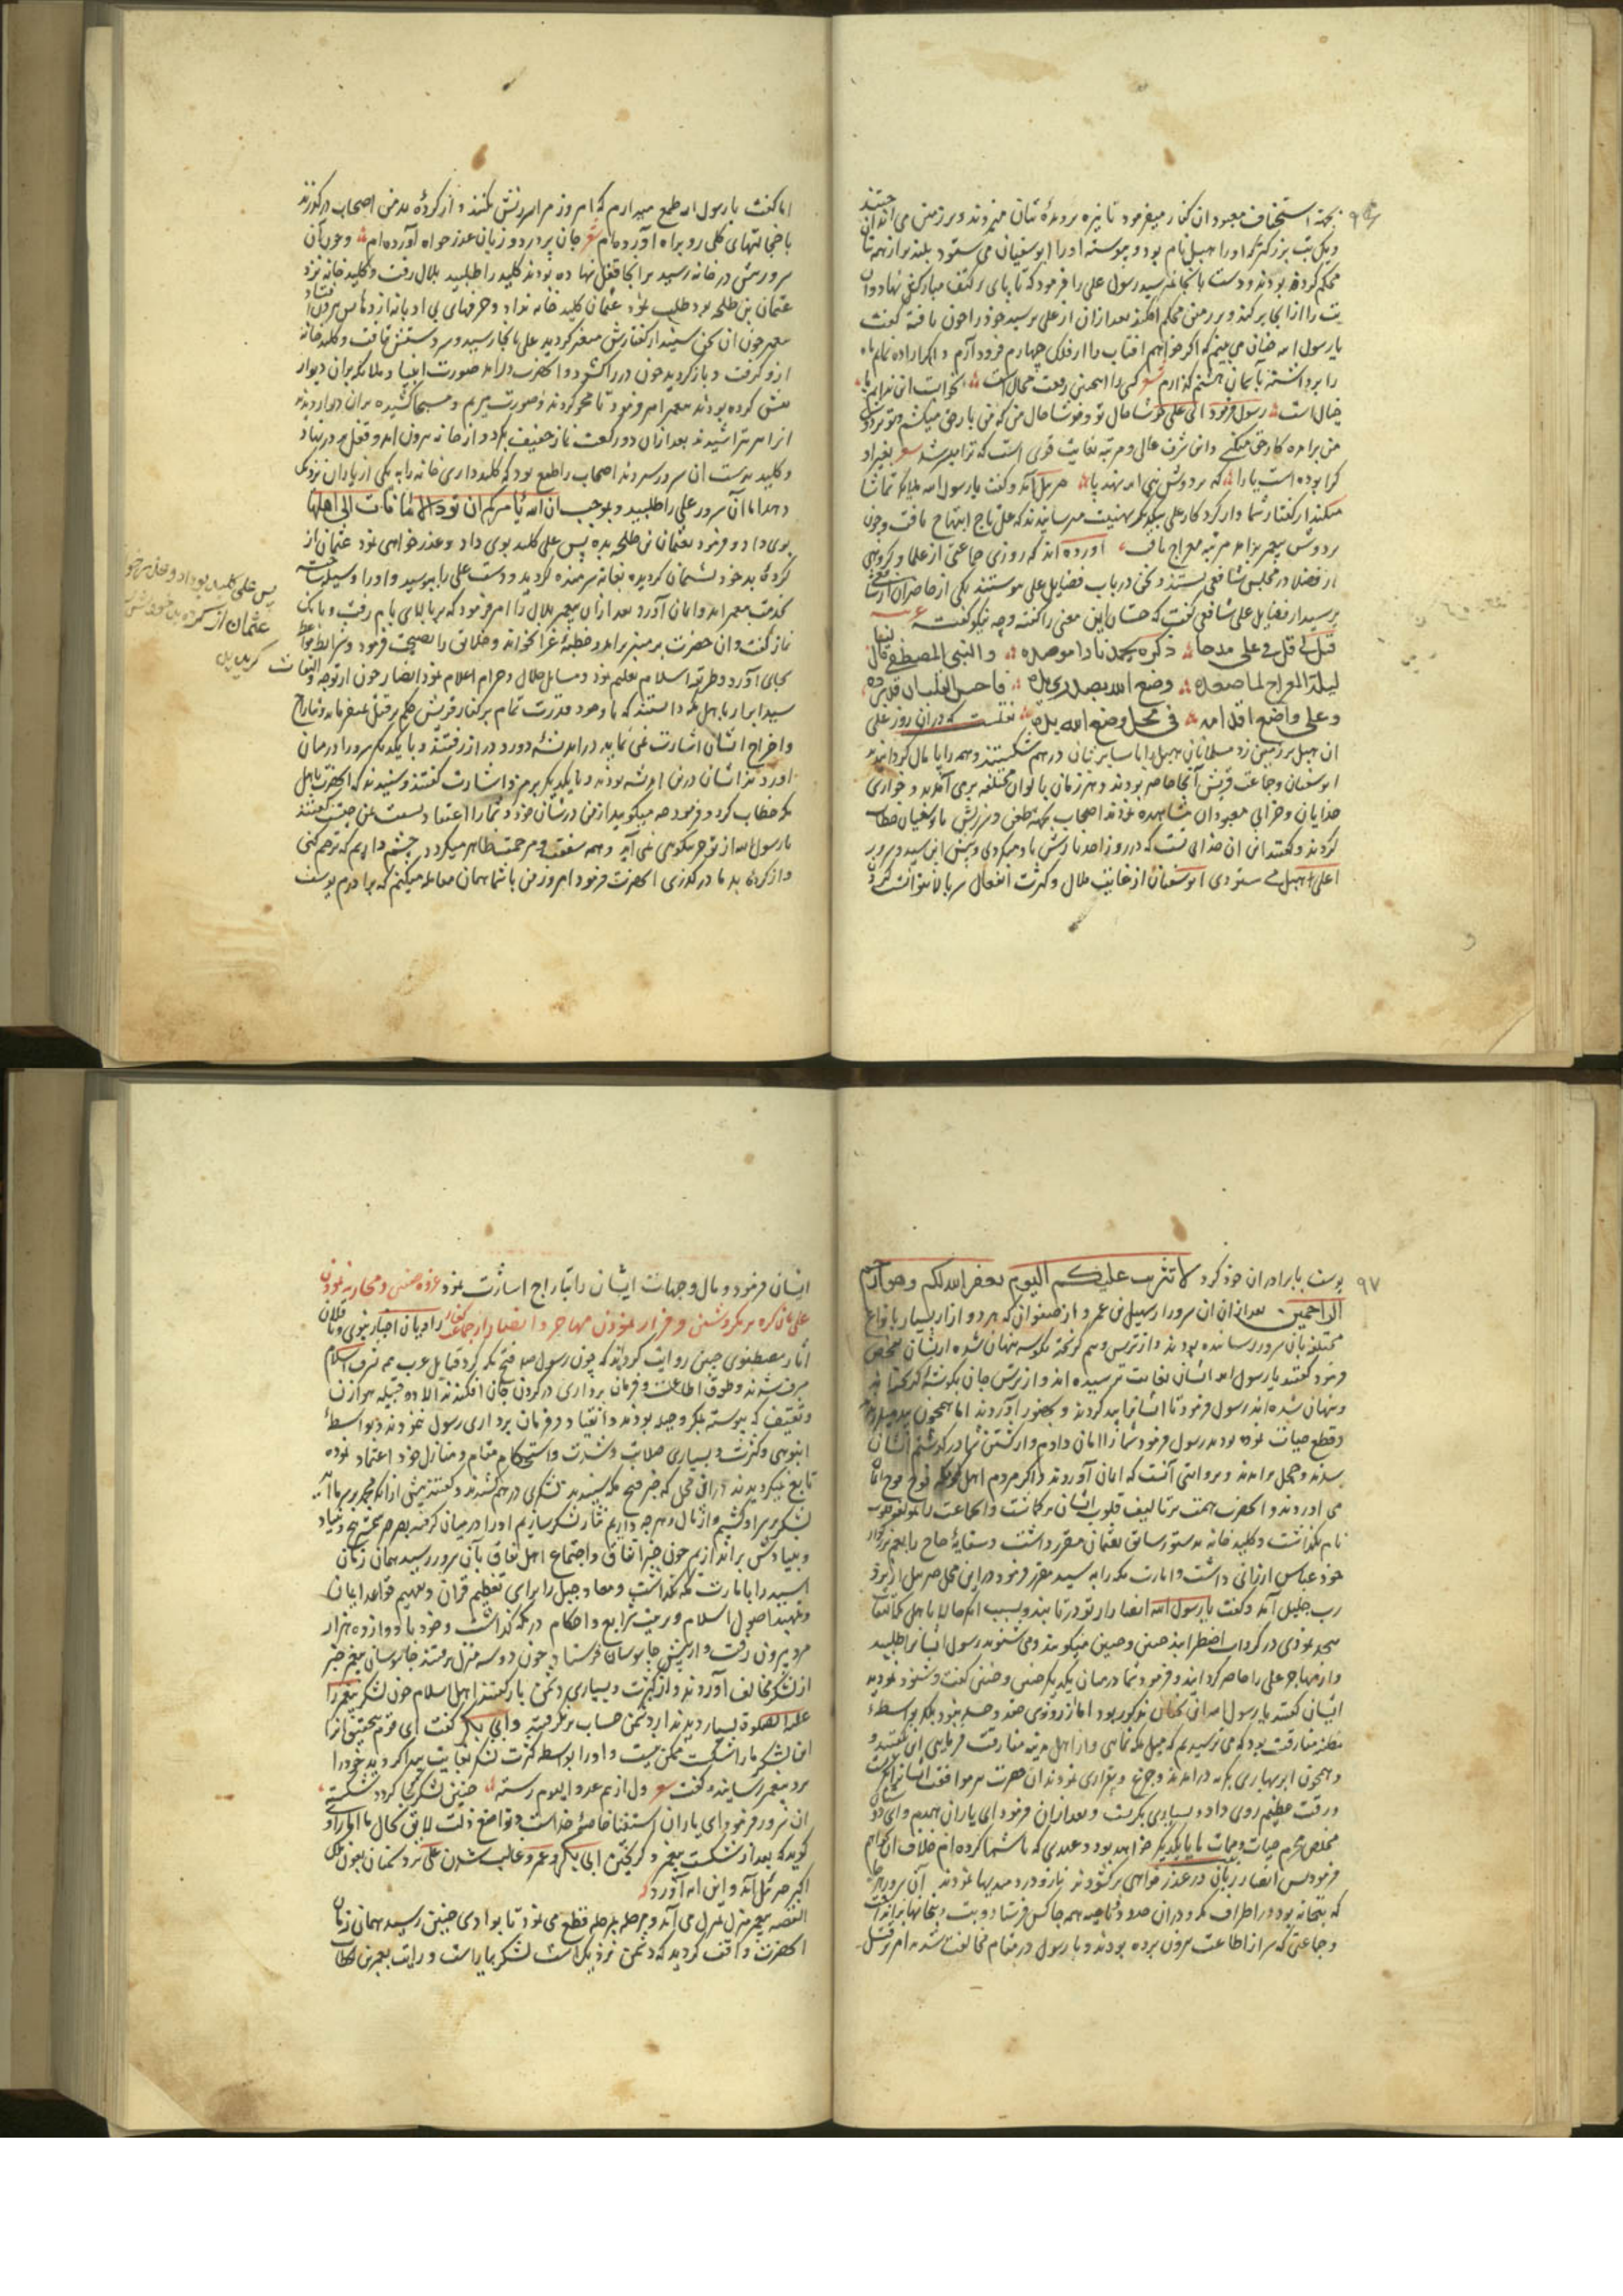 بجهة استخفاف معبودان کفار میفرمود تا نیزه بر دیدهٔ بتان میزدند و بر زمین می انداختند
۹۶
و یکی بت بزرکتر که او را هبل نام بود و پیوسته او را ابوسفیان می ستود بلندتر از همه
محکم کرده بودند و دست بانجا نمیرسید رسول علی را فرمود که تا پای بر کتف مبارکش نهاد و ان
بت را از انجا بر کند و بر زمین محکم افکند بعد ازان از علی پرسید خود را چون یافته کفت
یا رسول الله چنان می بینم که اکر خواهم افتاب را از فلک چهارم فرود آرم و اکر اراده نمایم
را برداشته باسمان هشتم کذارم شعر کسی را اینچنین رفعت محال است
خیال است رسول فرمود ای علی خوشا حال تو و خوشا حال من که من بار حق میکشم و تو
من برامده کار حق میکنی و این شرف عالی و مرتبه بغایت قوی است که ترا میسر شد شعر بغیر او
کرا بوده است یارا که بر دوش نبی الله نهد پا جبرئیل آمد و کفت یا رسول الله ملایکه تماشا
میکنند از کفتار شما و از کرد کار علی یکدیکر تهنیت میرسانیدند که علی تاج ابتهاج یافت و چون
بر دوش پیغمبر برامد مرتبه معراج یافت آورده اند که روزی جماعتی از علما و کروهی
از فضلا در مجلس شافعی نشستند و سخن در باب فضایل علی پیوستند یکی از حاضران از شافعی
پرسید از فضایل علی شافعی کفت که حسان این معنی را کفته و چه نیکو کفته
قیل لی قل فی علی مدحا ذکره یخمد نارا موصده والنبی المصطفی قال لنا
لیلة المعراج لما صعده وضع الله بصدری یده فاحس القلب ان قد برده
وعلی واضع اقدامه فی محل وضع الله یده نقلست که دران روز علی
ان هبل بر زمین زد مسلمانان هبل را با سایر بتان در هم شکستند و همه را پا مال کردانیدند
ابوسفیان و جماعت قریش آنجا حاضر بودند و هر زمان بالوان مختلفه بر می آمدند و خواری
خدایان و خرابی معبودان مشاهده نمودند اصحاب بجهة طعن و سرزنش با ابوسفیان خطاب
کردند و کفتند این ان خدای تست که در روز احد نازش باو میکردی و پیش این سید و سرور
اعلی هبل می ستودی ابوسفیان از غایت ملال و کثرت انفعال سر بالا نتوانست کرد
اما کفت یا رسول الله طمع میدارم که امروز مرا سرزنش نکنند و از کردهٔ بد من اصحاب درکذرند
با خجالتهای کلی رو براه آورده ام شعر جان پر درد و زبان عذرخواه آورده ام و چون آن
سرور پیش در خانه رسید بر انجا قفل نهاده بودند کلید را طلبید بلال رفت و کلید خانه نزد
عثمان بن طلحه بود طلب نمود عثمان کلید خانه نداد و حرفهای بی ادبانه از دهانش بیرون افتاد
پیغمبر چون ان سخن شنید از کفتارش متغیر کردید علی بانجا رسید و سر دستش تافت و کلید خانه
ازو کرفت و باز کردید چون در را کشود و انحضرت درامد صورت انبیا و ملایکه بران دیوار
نقش کرده بودند پیغمبر امر فرمود تا محو کردند و صورت مریم و مسیحا کشیده بران دیوار دیدند
انرا هم تراشیدند بعد ازان دو رکعت نماز خفیف بکرد و از خانه بیرون امد و قفل بر در نهاد
و کلید بدست ان سرور سپردند اصحاب را طمع بود که کلید داری خانه را به یکی از یاران نزدیک
دهد اما آن سرور علی را طلبید و بموجب ان الله یأمرکم ان تؤدوا الامانات الی اهلها
بوی داد و فرمود بعثمان بن طلحه بده پس علی کلید بوی داد و عذر خواهی نمود عثمان از
کردهٔ بد خود پشیمان کردیده بغایت شرمنده کردید و دست علی را ببوسید و او را وسیله ساخته
بخدمت پیغمبر امد و ایمان آورد بعد ازان پیغمبر بلال را امر فرمود که بر بالای بام رفت و بانک
نماز کفت و ان حضرت بر منبر برامد و خطبهٔ غرا بخواند و خلایق را نصیحت فرمود و شرایط مواعظ
بجای آورد و طریقه اسلام تعلیم نمود و مسایل حلال و حرام اعلام نمود انصار چون از توجه و التفات
سید ابرار با اهل مکه دانستند که با وجود قدرت تمام بر کفار قریش حکم بر قتل نمیفرماید و بتاراج
و اخراج ایشان اشارت نمی نماید در اندیشهٔ دور و دراز رفتند و با یکدیکر سرور در میان
اورد ند ایشان درین اندیشه بودند و با یکدیکر برمز و اشارت کفتند و شنیدند که انحضرت باهل
مکه خطاب کرد و فرمود چه میکویید از من در شان خود و شما را اعتماد چیست بمن جمیع کفتند
یا رسول الله از تو جز نیکویی نمی آید و همه شفقت و مرحمت ظاهر میکردد چشم داریم که ترحم کنی
و از کردهٔ بد ما درکذری انحضرت فرمود امروز من با شما همان معامله میکنم که برادرم یوسف
پس علی کلید بوی داد و عذر خواهی
عثمان از کرده بد خود پشیمان
کردید
یوسف با برادران خود کرد لا تثریب علیکم الیوم یغفر الله لکم وهو ارحم
۹۷
الراحمین بعد ازان ان سرور از سهیل بن عمرو و از صفوان که هر دو ازار بسیار بانواع
مختلفه بان سرور رسانیده بودند و از ترس و بیم کریخته بکوشه پنهان شده از ایشان تفحص
فرمود کفتند یا رسول الله ایشان بغایت ترسیده اند و از ترس جان بکوشه کریخته اند
و پنهان شده اند رسول فرمود تا ایشانرا پیدا کردند و بحضور آوردند اما همچون بید میلرزیدند
و قطع حیات نموده بودند رسول فرمود شما را امان دادم و از کشتن شما درکذشتم ایشان
شدند و خجل برامدند و بروایتی آنست که ایمان آوردند و اکثر مردم اهل مکه فوج فوج ایمان
می اوردند و انحضرت همت بر تالیف قلوب ایشان برکماشت و ان جماعت را مؤلفه قلوب
نام نکذاشت و کلید خانه بدستور سابق بعثمان مقرر داشت و سقایهٔ حاج را بعم بزرکوار
خود عباس ارزانی داشت و امارت مکه را به سید مقرر فرمود در این محل جبرئیل از نزد
رب جلیل آمد و کفت یا رسول الله انصار را تو دریابید و بسبب انکه حالا با اهل مکه التفات
بیحد نمودی در کرداب اضطراب اند چنین و چنین میکویند و می شنوند رسول ایشانرا طلبید
و از مهاجر علی را حاضر کردانید و فرمود شما در میان یکدیکر چنین و چنین کفت و شنود نمودید
ایشان کفتند یا رسول الله این سخنان مذکور بود اما از روی ضد و حسد نبود بلکه بواسطهٔ
مظنه مفارقت بود که می ترسیدیم که میل مکه نمایی و از اهل مدینه مفارقت فرمایی این بکفتند و
و همچون ابر بهاری بکریه درامدند و جزع و بیقراری نمودند ان حضرت در موافقت ایشان بکریست
و رقت عظیم روی داد و بسیاری بکریست و بعد ازان فرمود ای یاران همدم و ای دوستان
مخلص محرم حیات و ممات ما با یکدیکر خواهد بود و عهدی که با شما کرده ام خلاف ان نخواهم
فرمود پس انصار زبان در عذر خواهی برکشودند
که بتخانه بود در اطراف مکه و دران حدود و ناحیه همه جا کس فرستاد و بت و بتخانها برانداخت
و جماعتی که سر از اطاعت بیرون برده بودند و با رسول در مقام مخالفت شدند امر بر قتل
ایشان فرمود و مال و جهات ایشان را بتاراج اشارت نمود غزوه حنین و محاربه نمودن
علی با ان کره مکر و شکستن و فرار نمودن مهاجر و انصار از جماعت کفار راویان اخبار نبوی و ناقلان
آثار مصطفوی چنین روایت کرده اند که چون رسول خدا فتح مکه کرد قبایل عرب همه بشرف اسلام
مشرف شدند و طوق اطاعت و فرمان برداری در کردن جان افکندند الا ده قبیله هوازن
و ثقیف که پیوسته بمکر و حیله بودند و انقیاد و فرمان برداری رسول ننمودند و بواسطهٔ
انبوهی و کثرت و بسیاری صلابت و شدت و استحکام مقام و منازل خود اعتماد نموده
تابع نمیکردیدند درین محل که خبر فتح مکه شنیدند لشکری در هم کشیدند و کفتند پیش ازانکه محمد بر سر ما آید
لشکر بر سر او کشیم و از مال و هر چه داریم نثار لشکر سازیم او را در میان کرفته بصرصر نکبت بیخ و بنیاد
و بنیادش براندازیم چون خبر اتفاق و اجتماع اهل نفاق بآن سرور رسید همان زمان
اسید را بامارت مکه بکذاشت و معاد جبل را برای تعظیم قران و تفهیم قواعد ایمان
و تمهید اصول اسلام و تربیت شرایع و احکام در مکه کذاشت و خود با دوازده هزار
مرد بیرون رفت و از پیش جاسوسان فرستاد چون دو سه منزل برفتند جاسوسان پیغمبر خبر
از لشکر مخالف آوردند و از کثرت و بسیاری دشمن باز کفتند اهل اسلام چون لشکر پیغمبر را
علیه الصلوة بسیار دیدند از دشمن حساب بر نکرفتند و ابی بکر کفت ای قوم بتحقیق امروز
این لشکر ما را شکست ممکن نیست و او را بواسطه کثرت لشکر بغایت پیدا کردید خود را
برد پیغمبر رسانیده کفت شعر دل از بیم عدو الیوم رسته چنین لشکر کجا کردد شکسته
ان سرور فرمود ای یاران استغنا خاصهٔ خداست و تواضع ذلت لایق بحال ما
کویند که بعد از شکست پیغمبر و کریختن ابی بکر و عمر و غالب شدن علی بر دشمنان بعون ملک
اکبر جبرئیل آمد و این ایه آورد
القصه پیغمبر منزل بمنزل می آمد و مرحله بمرحله قطع می نمود تا بوادی حنین رسید همان زمان
انحضرت واقف کردید که دشمن نزدیک است لشکر بیاراست و رایت بعمر بن خطاب